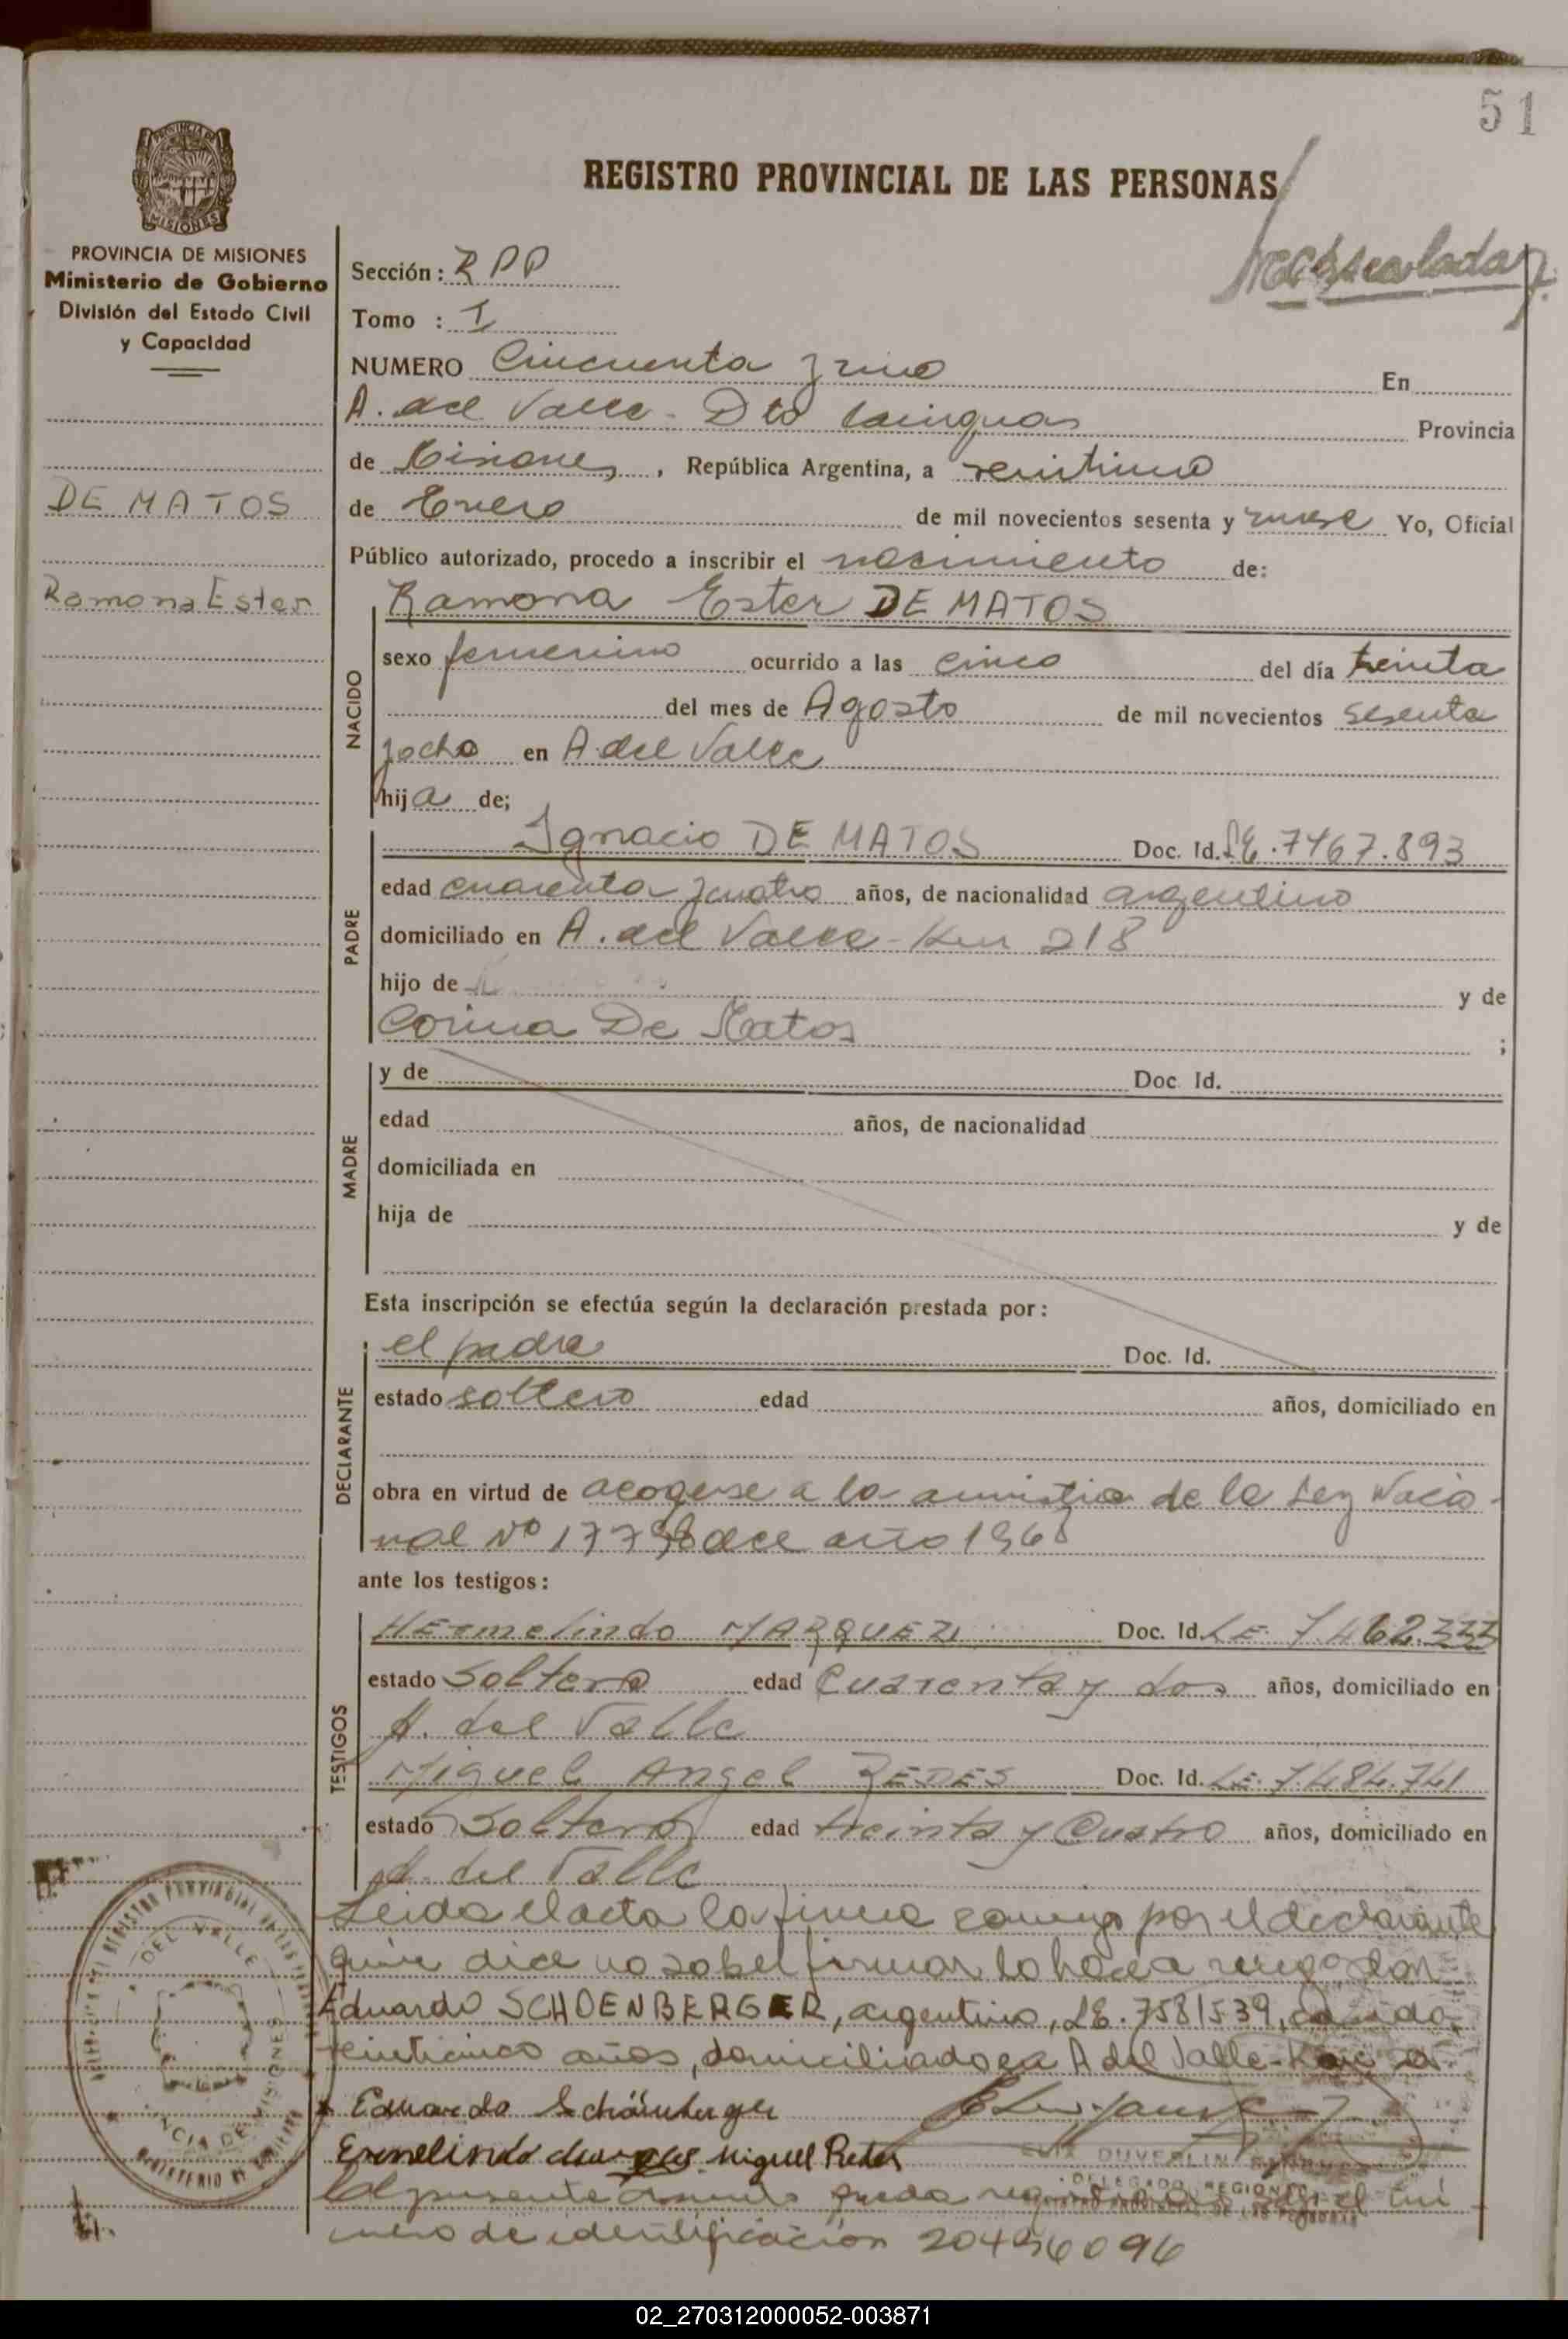 51
REGISTRO PROVINCIAL DE LAS PERSONAS
PROVINCIA DE MISIONES
Ministerio de Gobierno
División del Estado Civil
y Capacidad
DE MATOS
Ramona Ester
Sección: RPP
Tomo : I
NUMERO Cincuenta y uno En
A. del Valle - Dto Cainguas Provincia
de Misiones, República Argentina, a veintiuno
de Enero de mil novecientos sesenta y nueve Yo, Oficial
Público autorizado, procedo a inscribir el nacimiento de:
NACIDO
Ramona Ester DE MATOS
sexo femenino ocurrido a las cinco del día treinta
del mes de Agosto de mil novecientos sesenta
y ocho en A. del Valle
hija de;
PADRE
Ignacio DE MATOS Doc. Id. LE.7467.893
edad cuarenta y cuatro años, de nacionalidad argentino
domiciliado en A. del Valle - Km 218
hijo de y de
Corina De Matos ;
MADRE
y de Doc. Id.
edad años, de nacionalidad
domiciliada en
hija de y de
Esta inscripción se efectúa según la declaración prestada por:
DECLARANTE
el padre Doc. Id.
estado soltero edad años, domiciliado en
obra en virtud de acogerse a la amnistia de la Ley Nacio-
nal Nº 177 del año 1968
ante los testigos:
TESTIGOS
HErmelindo MARQUEZ Doc. Id. LE. 7.462.333
estado Soltero edad Cuarenta y dos años, domiciliado en
A. del Valle
Miguel Angel REDES Doc. Id. LE. 7.484.741
estado Soltero edad treinta y Cuatro años, domiciliado en
A. del Valle
Leida el acta la firma conmigo por el declarante
quien dice no saber firmar lo hace a ruego don
Eduardo SCHOENBERGER, argentino, LE. 7581539, casado,
veinticinco años, domiciliado en A del Valle -
Eduardo Schönberger
Ermelindo Miguel Redes
DELEGADO REGIONAL
El presente queda el nú
mero de identificación 20456096
DEL VALLE
MISIONES
02_270312000052-003871